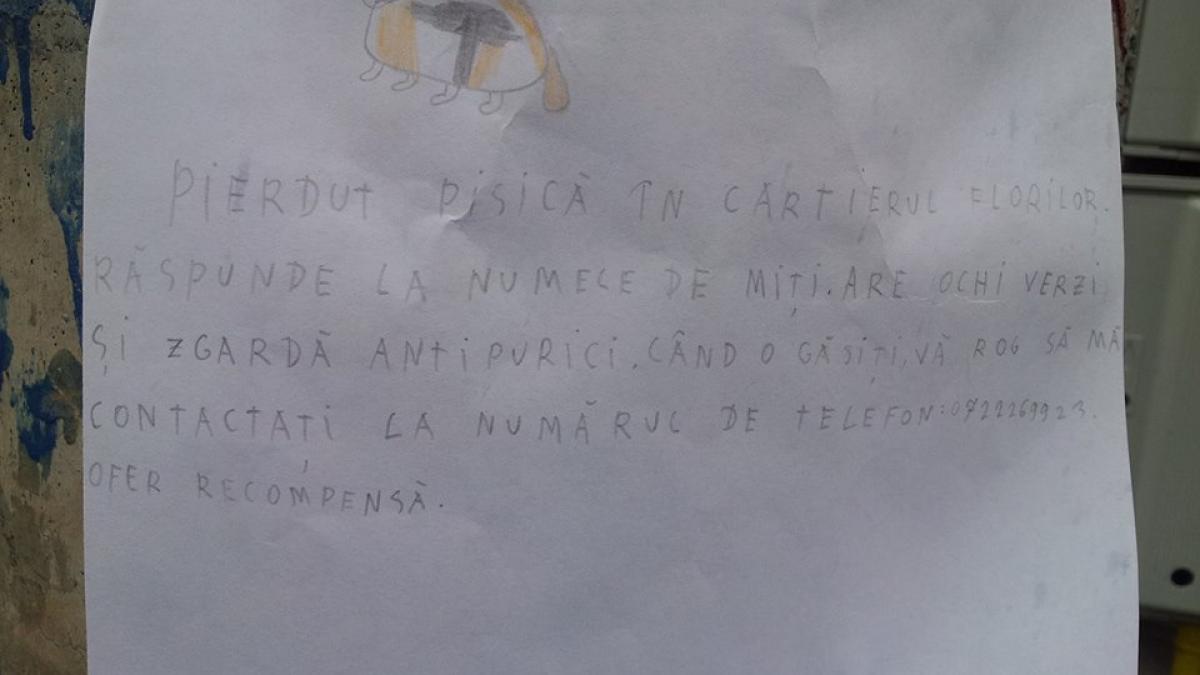 PIERDUT PISICĂ ÎN CARTIERUL FLORILOR.
RĂSPUNDE LA NUMELE DE MIȚI. ARE OCHI VERZI
ȘI ZGARDĂ ANTIPURICI. CÂND O GĂSIȚI, VĂ ROG SĂ MĂ
CONTACTAȚI LA NUMĂRUL DE TELEFON: 0722269923.
OFER RECOMPENSĂ.